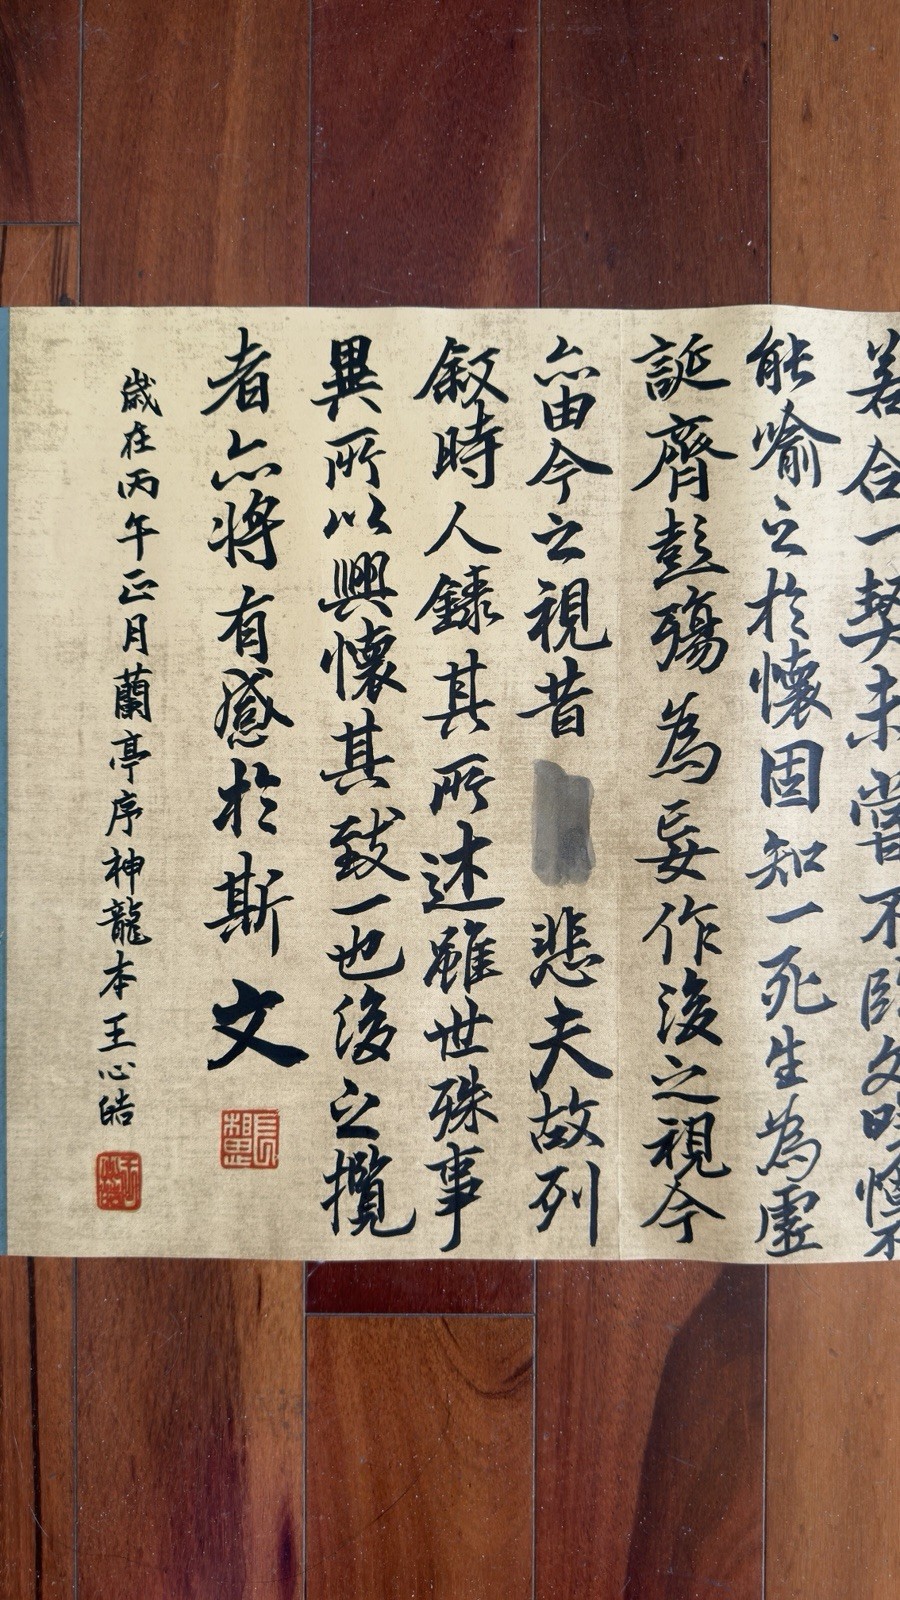 若合一契未嘗不臨文嗟悼不
能喻之於懷固知一死生為虛
誕齊彭殤為妄作後之視今
亦由今之視昔悲夫故列
敘時人錄其所述雖世殊事
異所以興懷其致一也後之攬
者亦將有感於斯文
歲在丙午正月蘭亭序神龍本王心皓